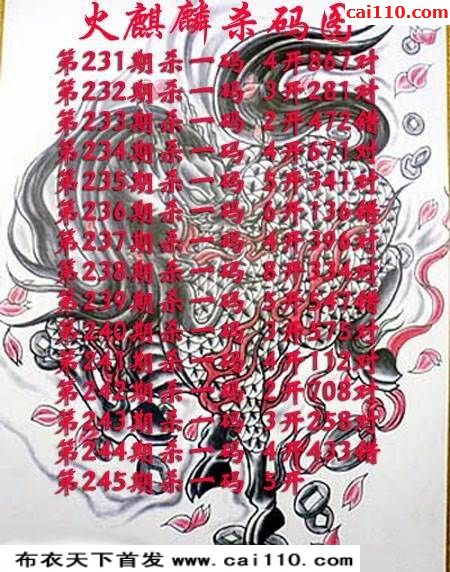 cai110.com
火麒麟杀码图
第231期杀一码 4开867对
第232期杀一码 3开281对
第233期杀一码 2开472错
第234期杀一码 4开671对
第235期杀一码 5开341对
第236期杀一码 6开136错
第237期杀一码 4开396对
第238期杀一码 8开334对
第239期杀一码 5开547错
第240期杀一码 3开575对
第241期杀一码 4开112对
第242期杀一码 2开708对
第243期杀一码 3开258对
第244期杀一码 4开433错
第245期杀一码 5开
布衣天下首发 www.cai110.com